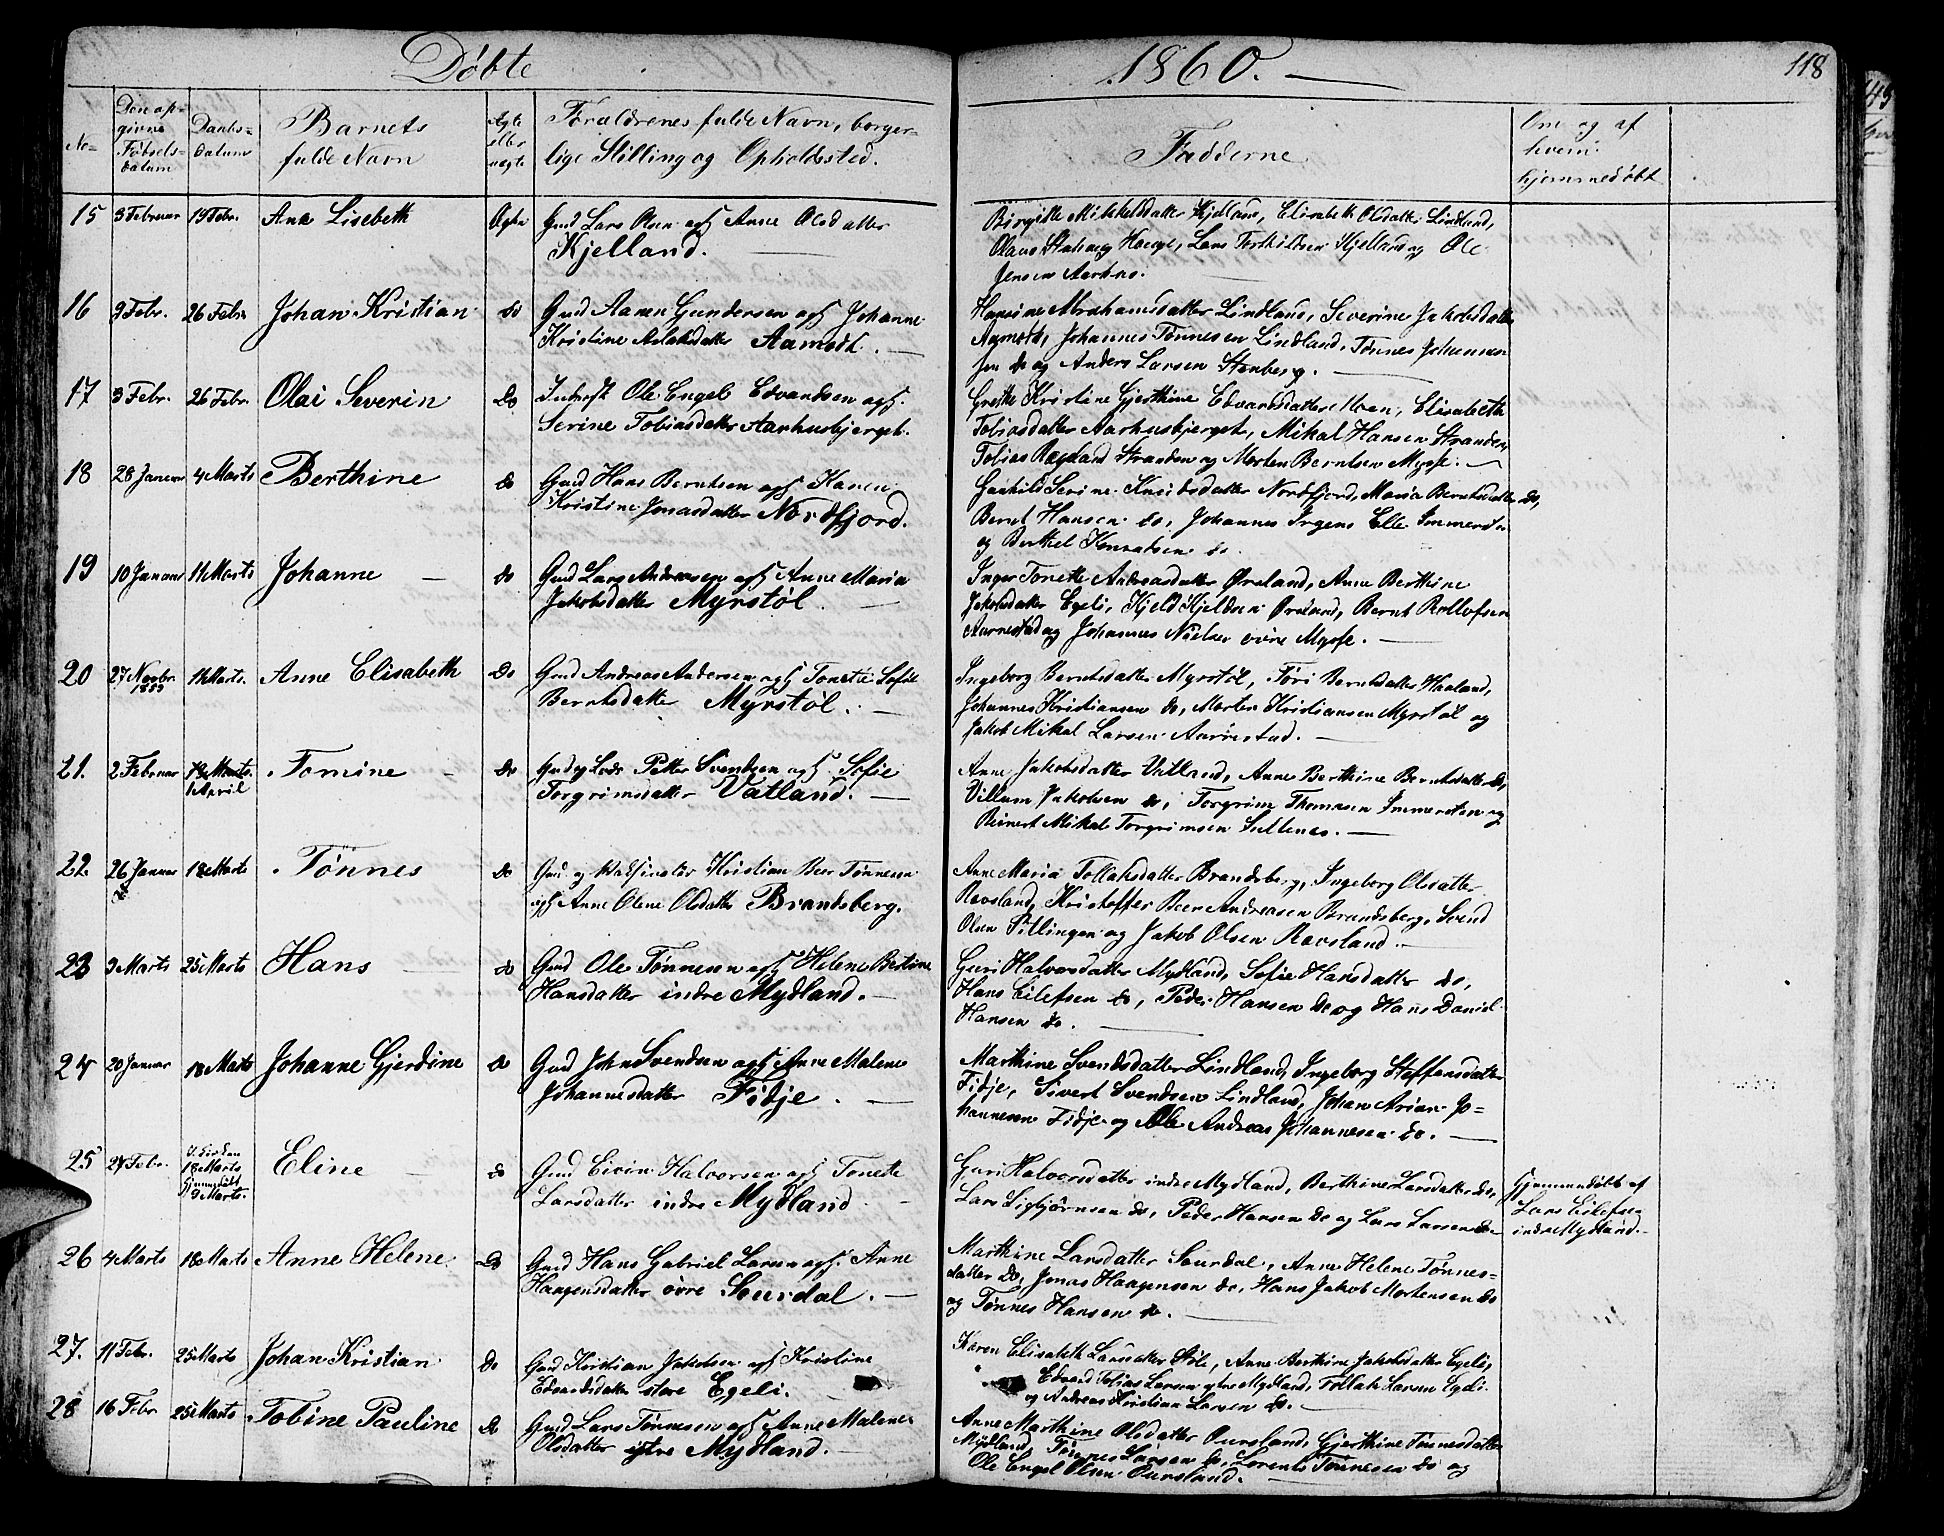 Døbte
1860.
118
No
Den op-
givne
Fødsels-
datum
Daabs-
datum
Barnets
fulde Navn
Ægte
eller
uægte
Forældrenes fulde Navn, borger-
lige Stilling og Opholdssted.
Fadderne
Om og af
hvem
hjemmedøbt
15 3 Februar 19 Febr. Ane Lisebeth Ægte Gmd Lars Olsen og H Anne Olsdatter
Kjelland.
Birgitte Mikkelsdatter Kjelland, Elisabeth Olsdatter Lindland,
Olaus Hauge, Lars Terkildsen Kjelland og Ole
Jensen Aarhus.
16 9 Febr. 26 Febr Johan Kristian do Gmd Aanen Gundersen og H Johanne
Kristine Aslaksdatter Aamodt.
Hansine Abrahamsdatter Lindland, Severine Jakobsdatter
Aamodt, Johannes Tønnesen Lindland, Tønnes Johannes-
sen do og Anders Larsen Stenberg.
17 3 Febr. 26 Febr. Olai Severin Do Inderst Ole Engel Edvardsen og H.
Serine Tobiasdatter Aarhusbjerget.
Grethe Kristine Gjerthine Edvardsdatter Moen, Elisabeth
Tobiasdatter Aarhusbjerget, Mikal Hansen Stranden,
Tobias Stranden og Morten Berntsen Mysse.
18 28 Januar 4 Marts Berthine do Gmd Hans Berntsen og H Karen
Kristine Jonasdatter Nordfjord.
Gunhild Serine Knudsdatter Nordfjord, Maria Berntsdatter do,
Bernt Hansen do, Johannes Irgens Elle Immersten
og Berthel Konradsen do.
19 10 Januar 11 Marts Johanne do Gmd Lars Andreasen og H Anne Maria
Jakobsdatter Myrstøl.
Inger Tonette Andreasdatter Ørsland, Anne Berthine
Jakobsdatter Egeli, Kjeld Kjeldsen Ørsland, Bernt Rollofsen
Aarrestad og Johannes Nielsen øvre Mysse.
20 27 Novbr. 1859 11 Marts. Anne Elisabeth Do Gmd Andreas Andersen og H Tonette Sofie
Berntsdatter Myrstøl.
Ingeborg Berntsdatter Myrstøl, Tøri Berntsdatter Haaland,
Johannes Kristiansen do, Morten Kristiansen Myrstøl og
Jakob Mikal Larsen Aarrestad.
21. 2 Februar 19 Marts.
1 April Tomine do Gmd og Lods Petter Svendsen og H Sofie
Torgrimsdatter Vatland.
Anne Jakobsdatter Vatland, Anne Berthine Berntsdatter do,
Villum Jakobsen do, Torgrim Thomasen Immersten og
Reinert Mikal Torgrimsen Sultenes.
22. 26 Januar 18 Marts Tønnes do Gmd og Kristian Beer Tønnesen
og H Anne Olene Olsdatter Brandsberg.
Anne Maria Tollaksdatter Brandsberg, Ingeborg Olsdatter
Ravsland, Kristoffer Beer Andreasen Brandsberg, Svend
Olsen Sillingen og Jakob Olsen Ravsland.
23 9 Marts 25 Marts Hans do Gmd Ole Tønnesen og H Helene Bertine
Hansdatter indre Mydland.
Guri Halvorsdatter Mydland, Sofie Hansdatter do,
Hans Eilefsen do, Peder Hansen do og Hans Daniel
Hansen do.
24 20 Januar 18 Marts Johanne Gjerdine do Gmd John Svendsen og H Anne Malene
Johannesdatter Fidje.
Marthine Svendsdatter Lindland, Ingeborg Steffensdatter
Fidje, Sivert Svendsen Lindland, Johan Arian Jo-
hannesen Fidje og Ole Andreas Johannesen do.
25 27 Febr. I Kirken
18 Marts
Hjemmedøbt
9 Marts. Eline do Gmd Eivin Halvorsen og H Tonette
Larsdatter indre Mydland
Guri Halvorsdatter indre Mydland, Berthine Larsdatter do,
Lars Sigbjørnsen do, Peder Hansen do og Lars Larsen do
Hjemmedøbt af
Lars Eilefsen
indre Mydland.
26 4 Marts 18 Marts Anne Helene Do Gmd Hans Gabriel Larsen og H. Anne
Haagensdatter øvre Suurdal.
Marthine Larsdatter Suurdal, Anne Helene Tønnes-
datter do, Jonas Haagensen do, Hans Jakob Mortensen do
og Tønnes Hansen do.
27. 11 Febr. 25 Marts Johan Kristian do Gmd Kristian Jakobsen og H Kristine
Edvardsdatter store Egeli.
Karen Elisabeth Larsdatter Stole, Anne Berthine Jakobsdatter Egeli,
Edvard Tobias Larsen ytre Mydland, Tollak Larsen Egeli
og Andreas Kristian Larsen do.
28 16 Febr 25 Marts Tobine Pauline do Gmd Lars Tønnesen og H Anne Malene
Olsdatter ytre Mydland.
Anne Marthine Olsdatter Oursland, Gjerthine Tønnesdatter
Mydland, Tønnes Larsen do, Lorents Tønnesen do og
Ole Engel Olsen Oursland.